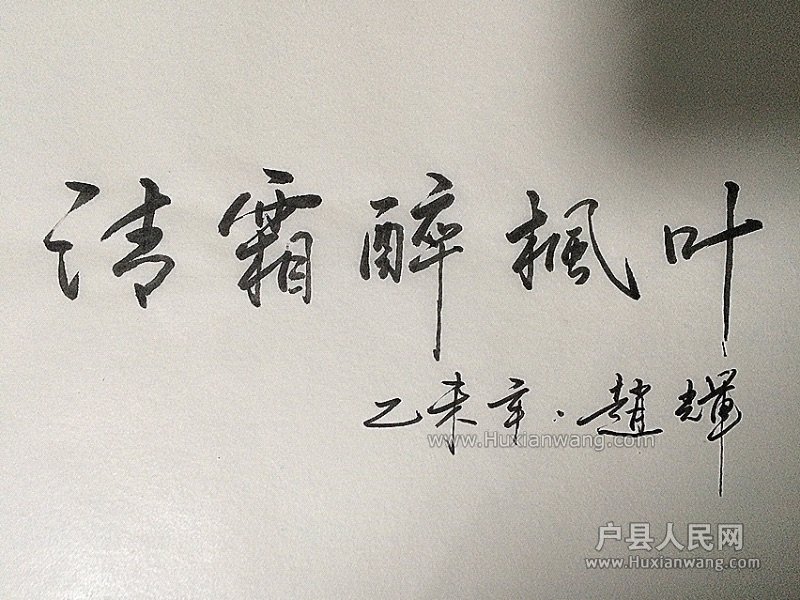 清霜醉枫叶
乙未年.趙輝
www.Huxianwang.com
户县人民网
www.Huxianwang.com